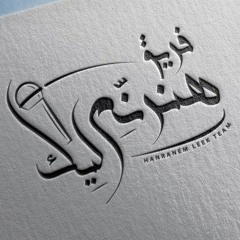 فريق
هنرنّم
ليك
HANRANEM LEEK TEAM